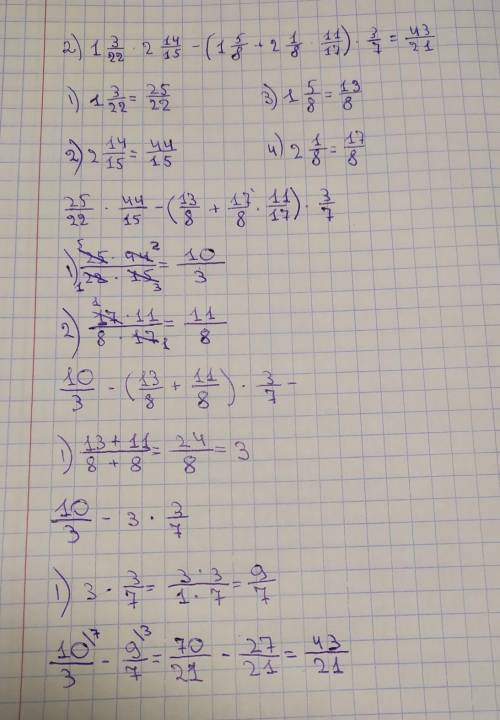 2) 1 3/22 · 2 14/15 - (1 5/8 + 2 1/8 · 11/17) · 3/7 = 43/21
1) 1 3/22 = 25/22 3) 1 5/8 = 13/8
2) 2 14/15 = 44/15 4) 2 1/8 = 17/8
25/22 · 44/15 - (13/8 + 17/8 · 11/17) · 3/7
1) 25 · 44/22 · 15 = 10/3
2) 17 · 11/8 · 17 = 11/8
10/3 - (13/8 + 11/8) · 3/7 -
1) 13 + 11/8 + 8 = 24/8 = 3
10/3 - 3 · 3/7
1) 3 · 3/7 = 3 · 3/1 · 7 = 9/7
10\7/3 - 9\3/7 = 70/21 - 27/21 = 43/21